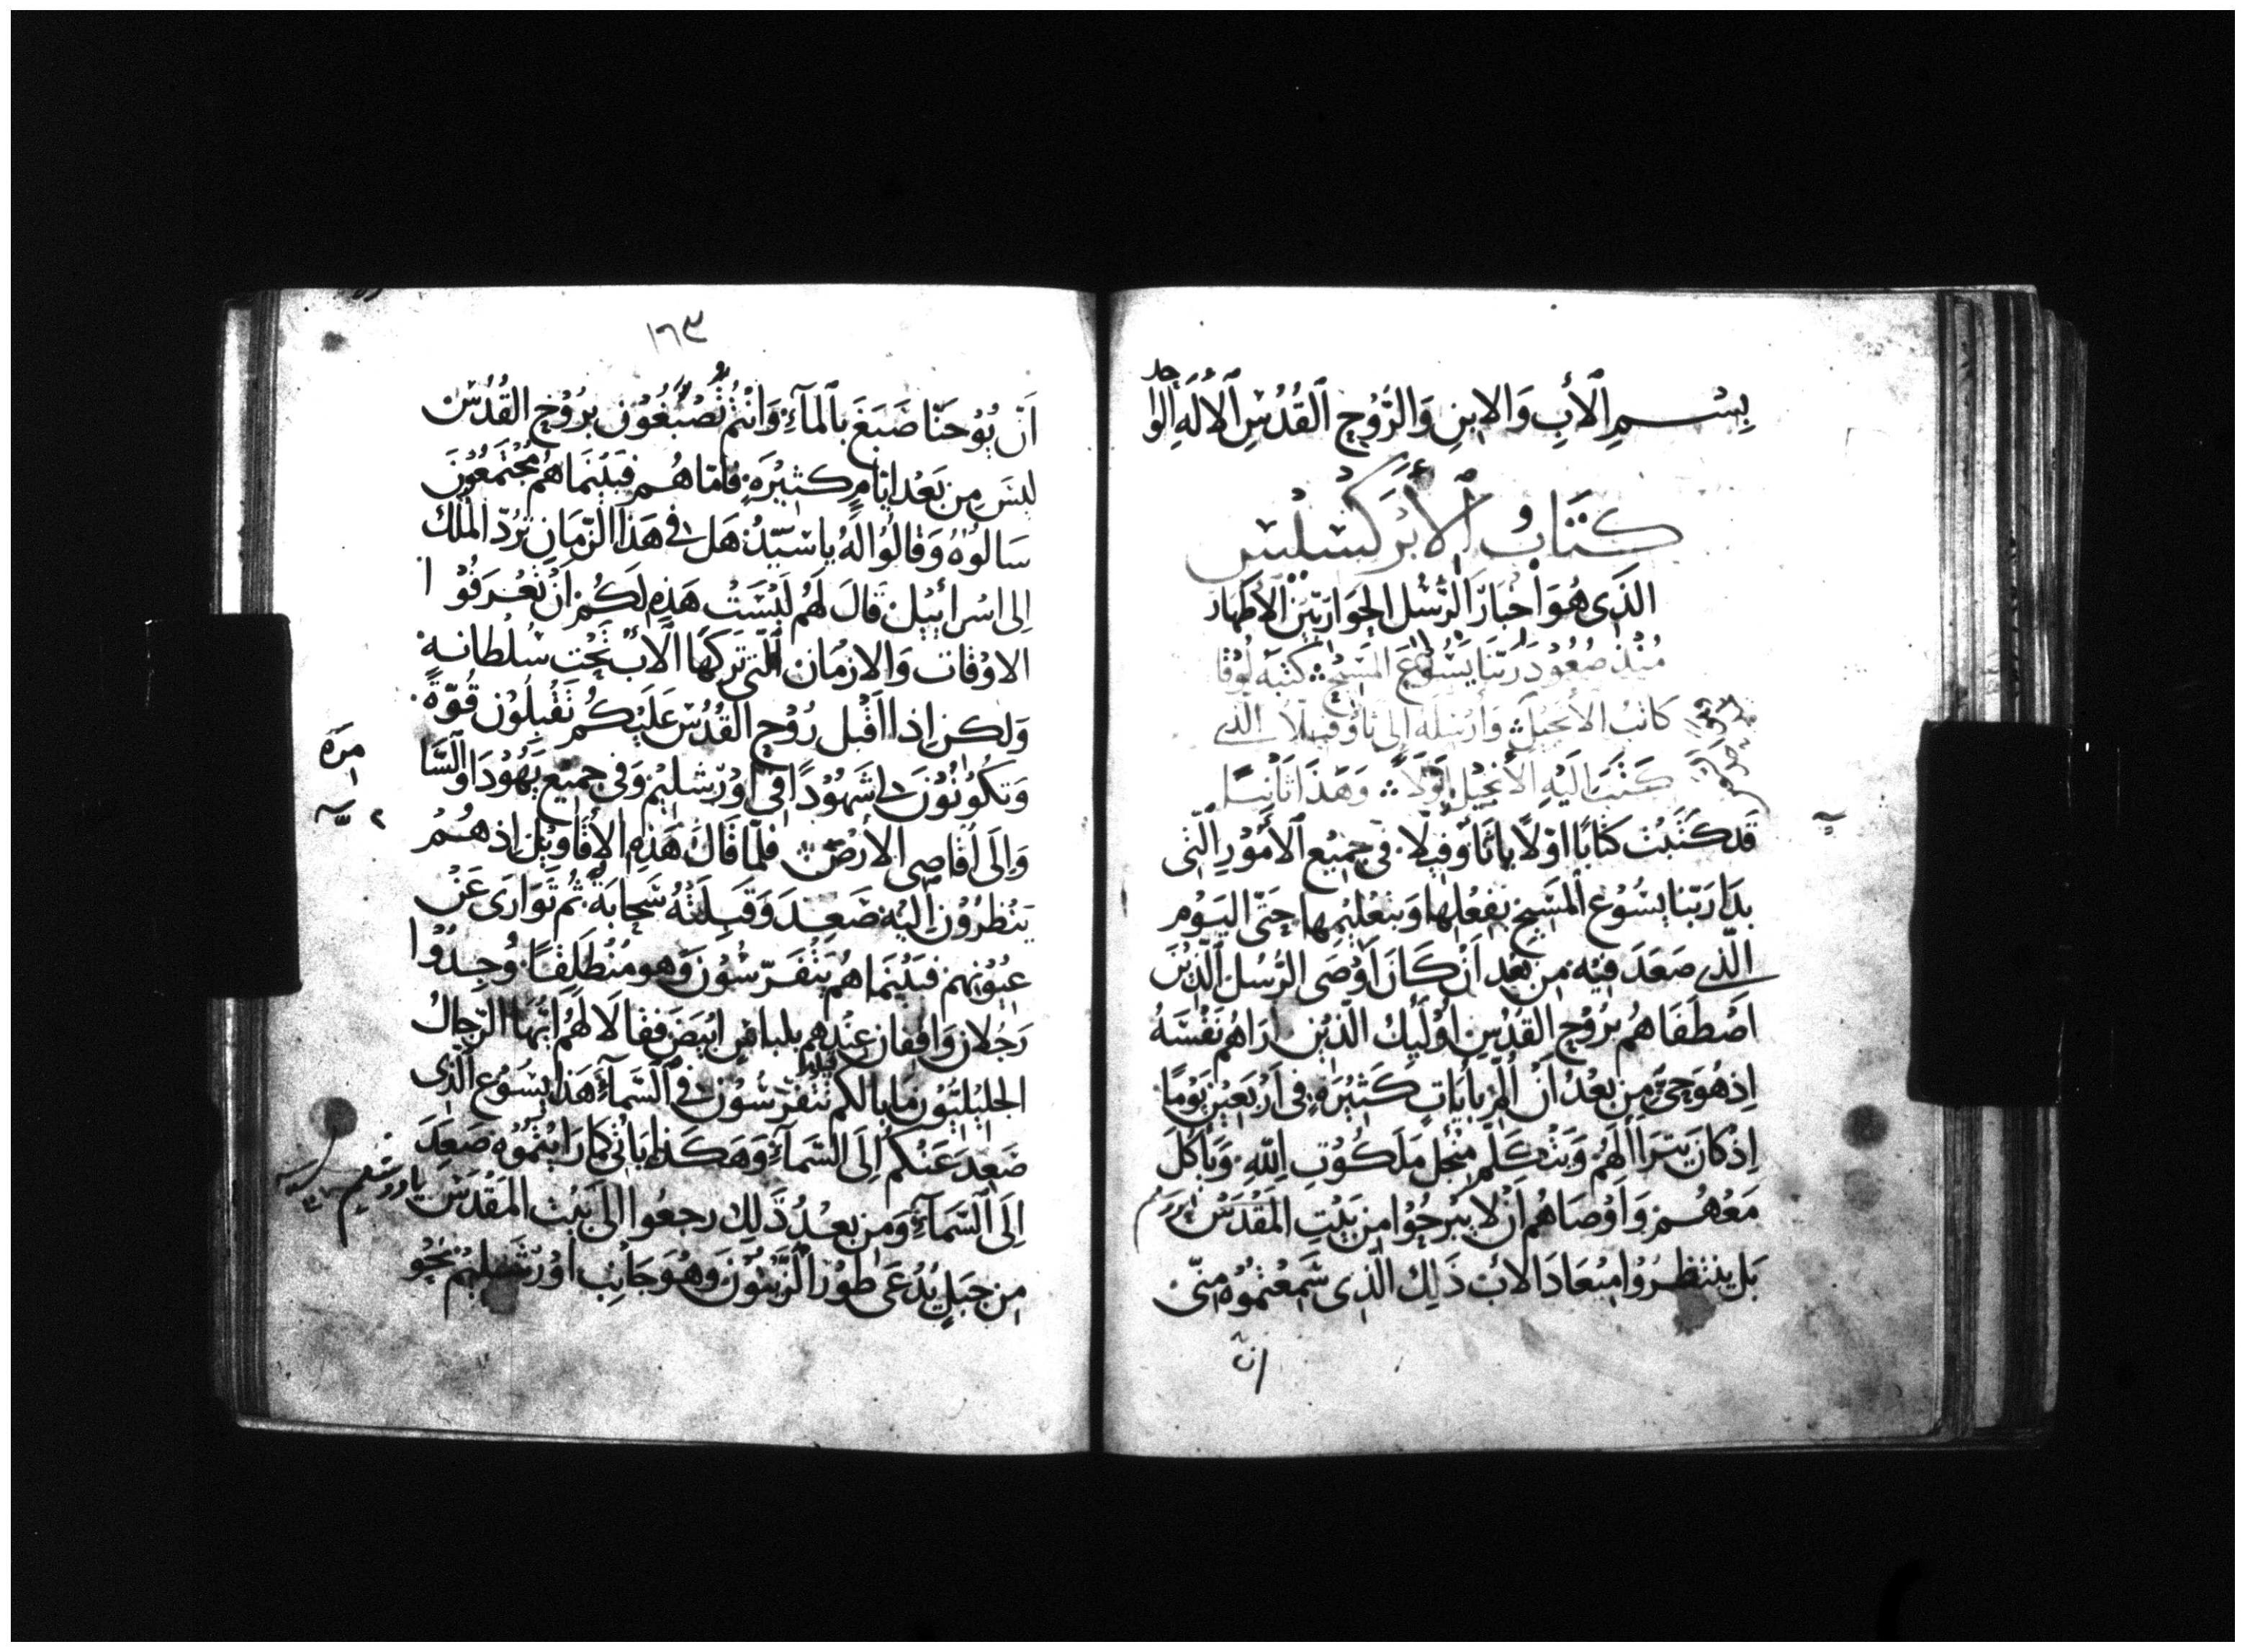 بِسْمِ ٱلْأَبِ وَالابنِ وَالرُّوْحِ ٱلقُدُسِ ٱلْأِلَهِ الوا
حد
كتَابُ ٱلأَبْرَكْسِيْسِ
الذِى هُوَ اَخبَارَ الرُّسُل الحِوَاريّين الأَطهار
مُنْذُ صُعُود رَبّنَا يَسُوْعَ المَسِيْحْ كتَبَه لُوْقَا
كاتبُ الأنجِيْل وَأَرْسَلَه اِلى ثاوُفيلا الذي
كَتَبَ اِلَيْهِ الأَنجيْل اَوّلاً وَهَذَا ثَانِيًا
قَد كَتَبْت كتَابًا اوَّلاً يا ثَأوُفِيلاَ فى جميْع ٱلأُمُوْرِ الّتِى
بدَا رَبّنا يسُوْع المَسِيْح بِفعْلِها وَبتعْليْمِها حَتّى اليَوْم
الّذِي صَعَدَ فيْه من بعْدِ اَنْ كَانَ اَوْصَى الرُّسُل الّذِيْنَ
اصْطَفَاهُم برُوْحِ القُدُسِ اوُلَيِكَ الّذيْن ارَاهُم نَفْسَهُ
اِذ هُوَ حَىٌّ مِن بَعْدُ اَنْ اَلِمَ بأيَاتٍ كَثِيْرَةٍ فى اَرْبَعِيْن يَوْمًا
اِذ كانَ يَترَاا لَهُم وَيَتكَلّم مِنْجل مَلَكوْتِ اللهِ وَيَأكل
مَعْهُم وَاَوْصَاهُم اَنْ لا يَبْرحُوْا مِن بَيْتِ المَقْدَسْ
بَل ينتَظِرُوْا مِيْعَادَ الأب ذَلِكَ الّذِى سَمِعْتمُوْه مِنّى
ان
١٦٣
اَنّ يُوْحَنّا صَبَغَ بالمَآءِ وَانْتُم تُصْبَغُوْن بِرُوْحِ القُدُسْ
ليسَ مِن بَعْد ايّامٍ كثيْرَةٍ فامّا هُم فَبَيْنَمَا هُم مُجْتَمعُوْنَ
سَالوُهْ وَقَالُوْا لَهُ يا سَيّدُنْ هَل فى هَذا الزّمَانِ تَرُدّ المُلْك
اِلى اسْرائيْل قالَ لَهُم لَيْسَتْ هَذِهِ لَكُم اَنْ تعْرَفُوْا
الاوْقات وَالازمَان الّتى تَركَها الأب تَحْت سُلْطانهِ
وَلكن اِذا اَقْبل رُوْح القُدُسْ عَلَيْكُم تَقْبلُوْن قُوّةً
وَتكُوْنُوْنَ لى شهُوْدًا فى اوْرشليْم وَفى جميْع يَهُوْدَا وَالسّا
مرَه
وَاِلَى أقَاصِى الأرْضْ فلمّا قَالَ هَذِهِ الأقَاوِيْل اِذ هُمُ
يَنْظرُوْن اِليْهِ صَعِدَ وَقَبِلَتْهُ سَحابَةٌ ثُم تَوَارَى عَنْ
عيُوْنهم فبَيْنَمَا هُم يَتفَرّسُوْن وَهو مُنْطَلِقًا وُجِدُوْا
رَجُلان وَاقِفان عِنْدهم بلباسٍ ابْيَضَ فقالا لَهُم ايّهَا الرّجالُ
الجليْليّيْون مَا بالكُم تتفرّسُوْن فى السّمآءِ هَذا يسُوْع الّذِى
صَعِدَ عَنكُم اِلَى السّمَآءِ وَهَكذا يَاتى كمَا رَايْتمُوْه صَعِدَ
اِلَى السّمَآءِ وَمِن بعْدُ ذَلِك رجعُوا الى بَيْت المَقْدَسْ
من جَبَلٍ يُدْعَى طوْر الزّيْتوْن وَهُوَ جَانِب اوْرشليْم نحْو